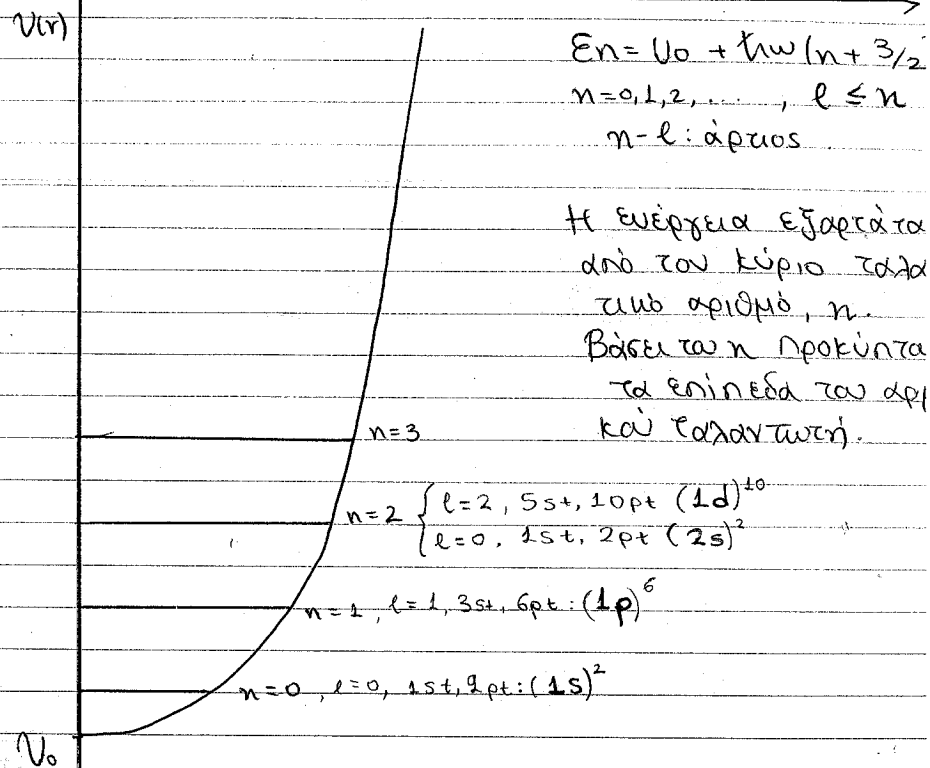 V(r)
En = Vo + ħω (n + 3/2
n=0,1,2,...., ℓ ≤ n
n-ℓ: άρτιος.
Η ενέργεια εξαρτάτα
από τον κύριο ταλα
τικό αριθμό, n.
Βάσει του n προκύπτα
τα επίπεδα του αρ
κού ταλαντωτή.
n=3
n=2 { ℓ=2, 5st, 10pt (1d)¹⁰
ℓ=0, 1st, 2pt (2s)²
n=1, ℓ=1, 3st, 6pt: (1p)⁶
n=0, ℓ=0, 1st, 2pt: (1s)²
Vo